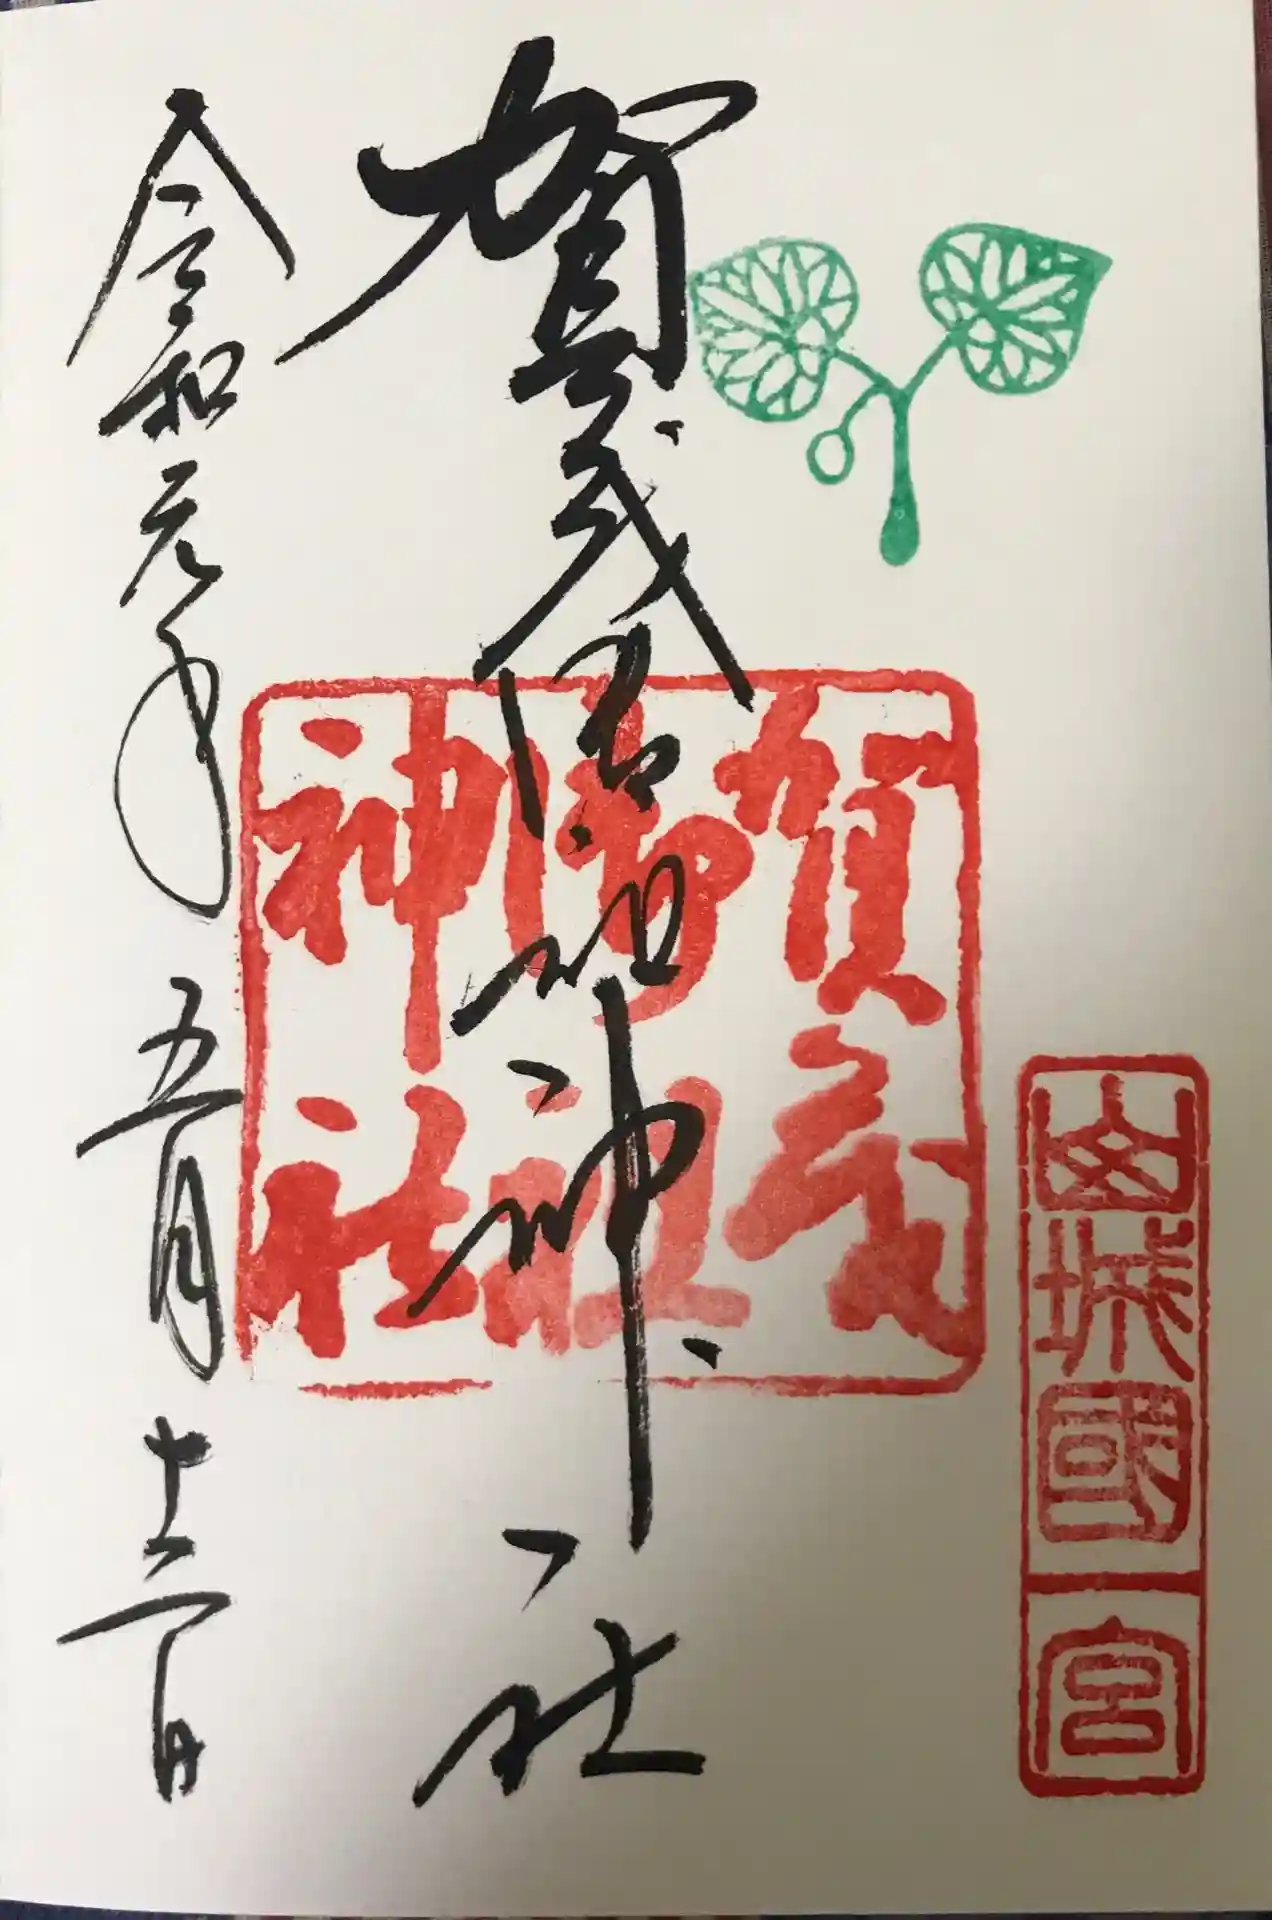 山城國一宮
賀茂御祖神社
賀茂
御祖
神社
令和元年五月十二日